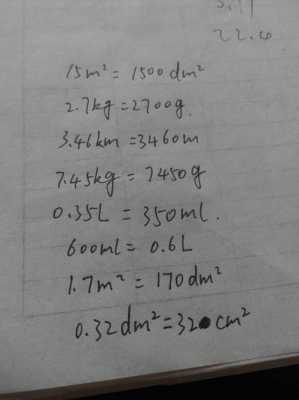 22.4
15m² = 1500 dm²
2.7kg = 2700g
3.46km = 3460m
7.45kg = 7450g
0.35L = 350ml.
600ml = 0.6L
1.7m² = 170dm²
0.32dm² = 32 cm²